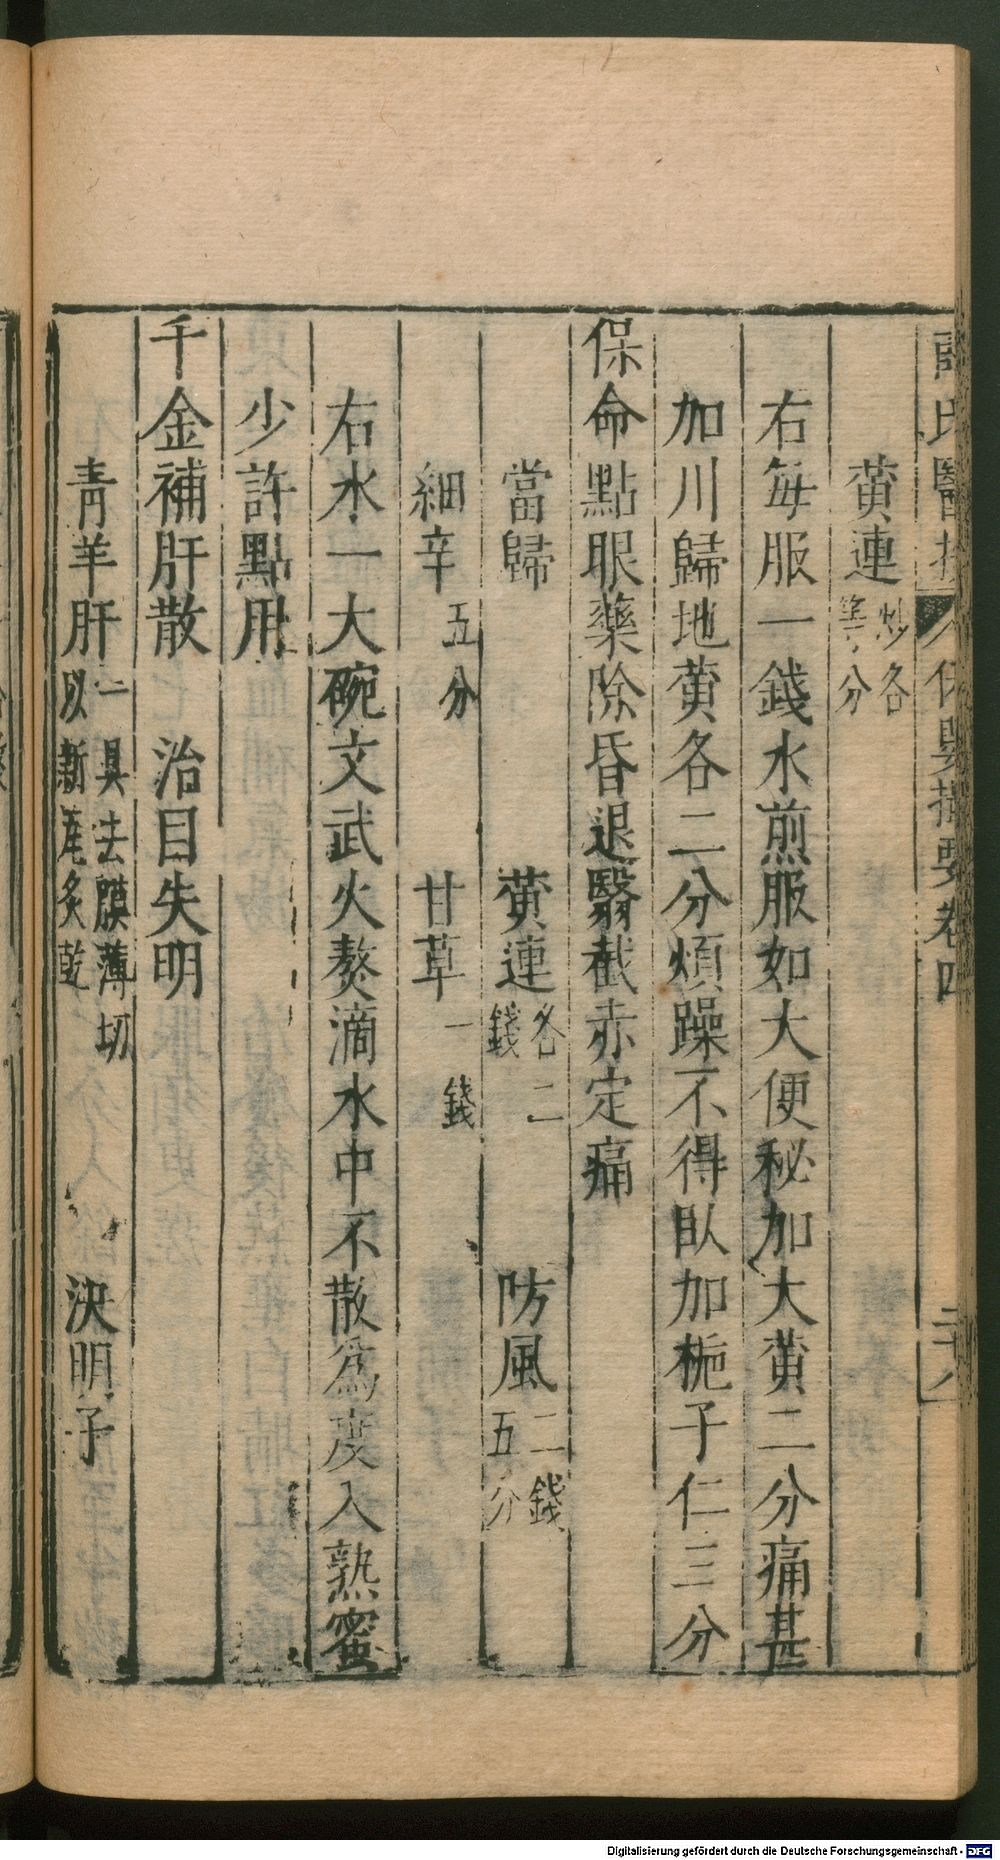 氏醫 保嬰撮要卷四 二十八
黃連炒各等分
右每服一錢水煎服如大便秘加大黃二分痛甚
加川歸地黃各二分煩躁不得臥加梔子仁三分
保命點眼藥除昏退翳截赤定痛
當歸 黃連各二錢 防風二錢五分
細辛五分 甘草一錢
右水一大碗文武火熬滴水中不散爲度入熟蜜
少許點用
千金補肝散 治目失明
青羊肝一具去膜薄切以新瓦炙乾 決明子
Digitalisierung gefördert durch die Deutsche Forschungsgemeinschaft - DFG